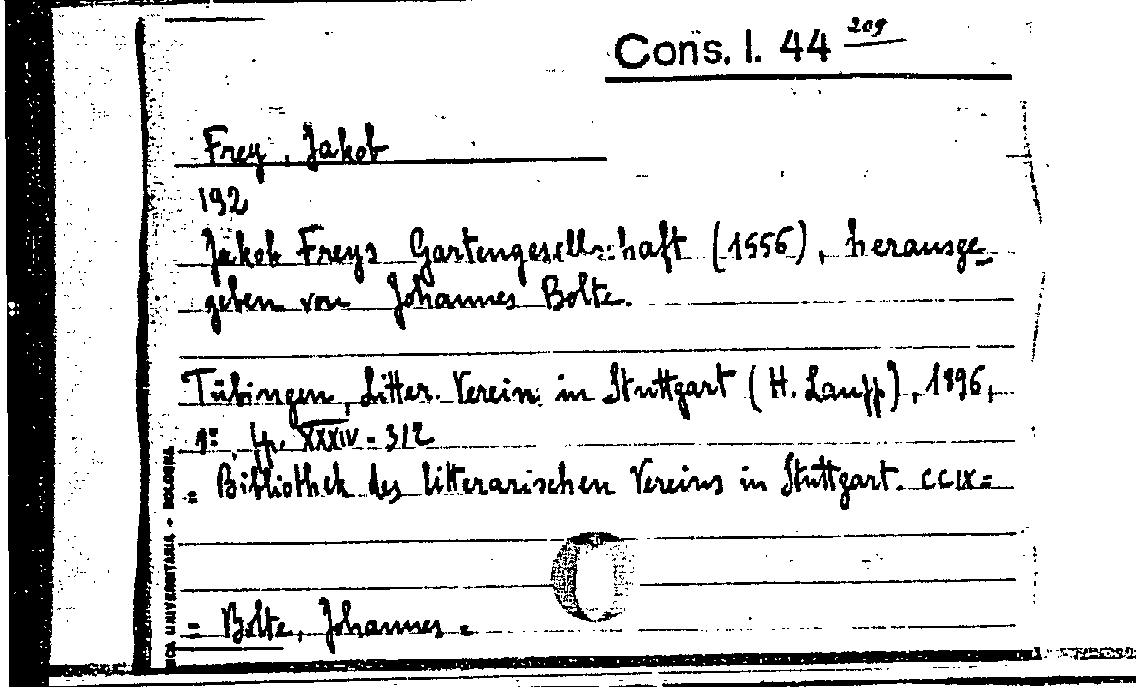 Cons. I. 44 209
Frey, Jakob
192
Jakob Freys Gartengesellschaft (1556), herausge-
geben von Johannes Bolte.
Tübingen, Litter. Verein in Stuttgart (H. Laupp), 1896,
8º, pp. XXXIV-312
= Bibliothek des litterarischen Vereins in Stuttgart. CCIX=
= Bolte, Johannes =
UNIVERSITARIA - BOLOGNA